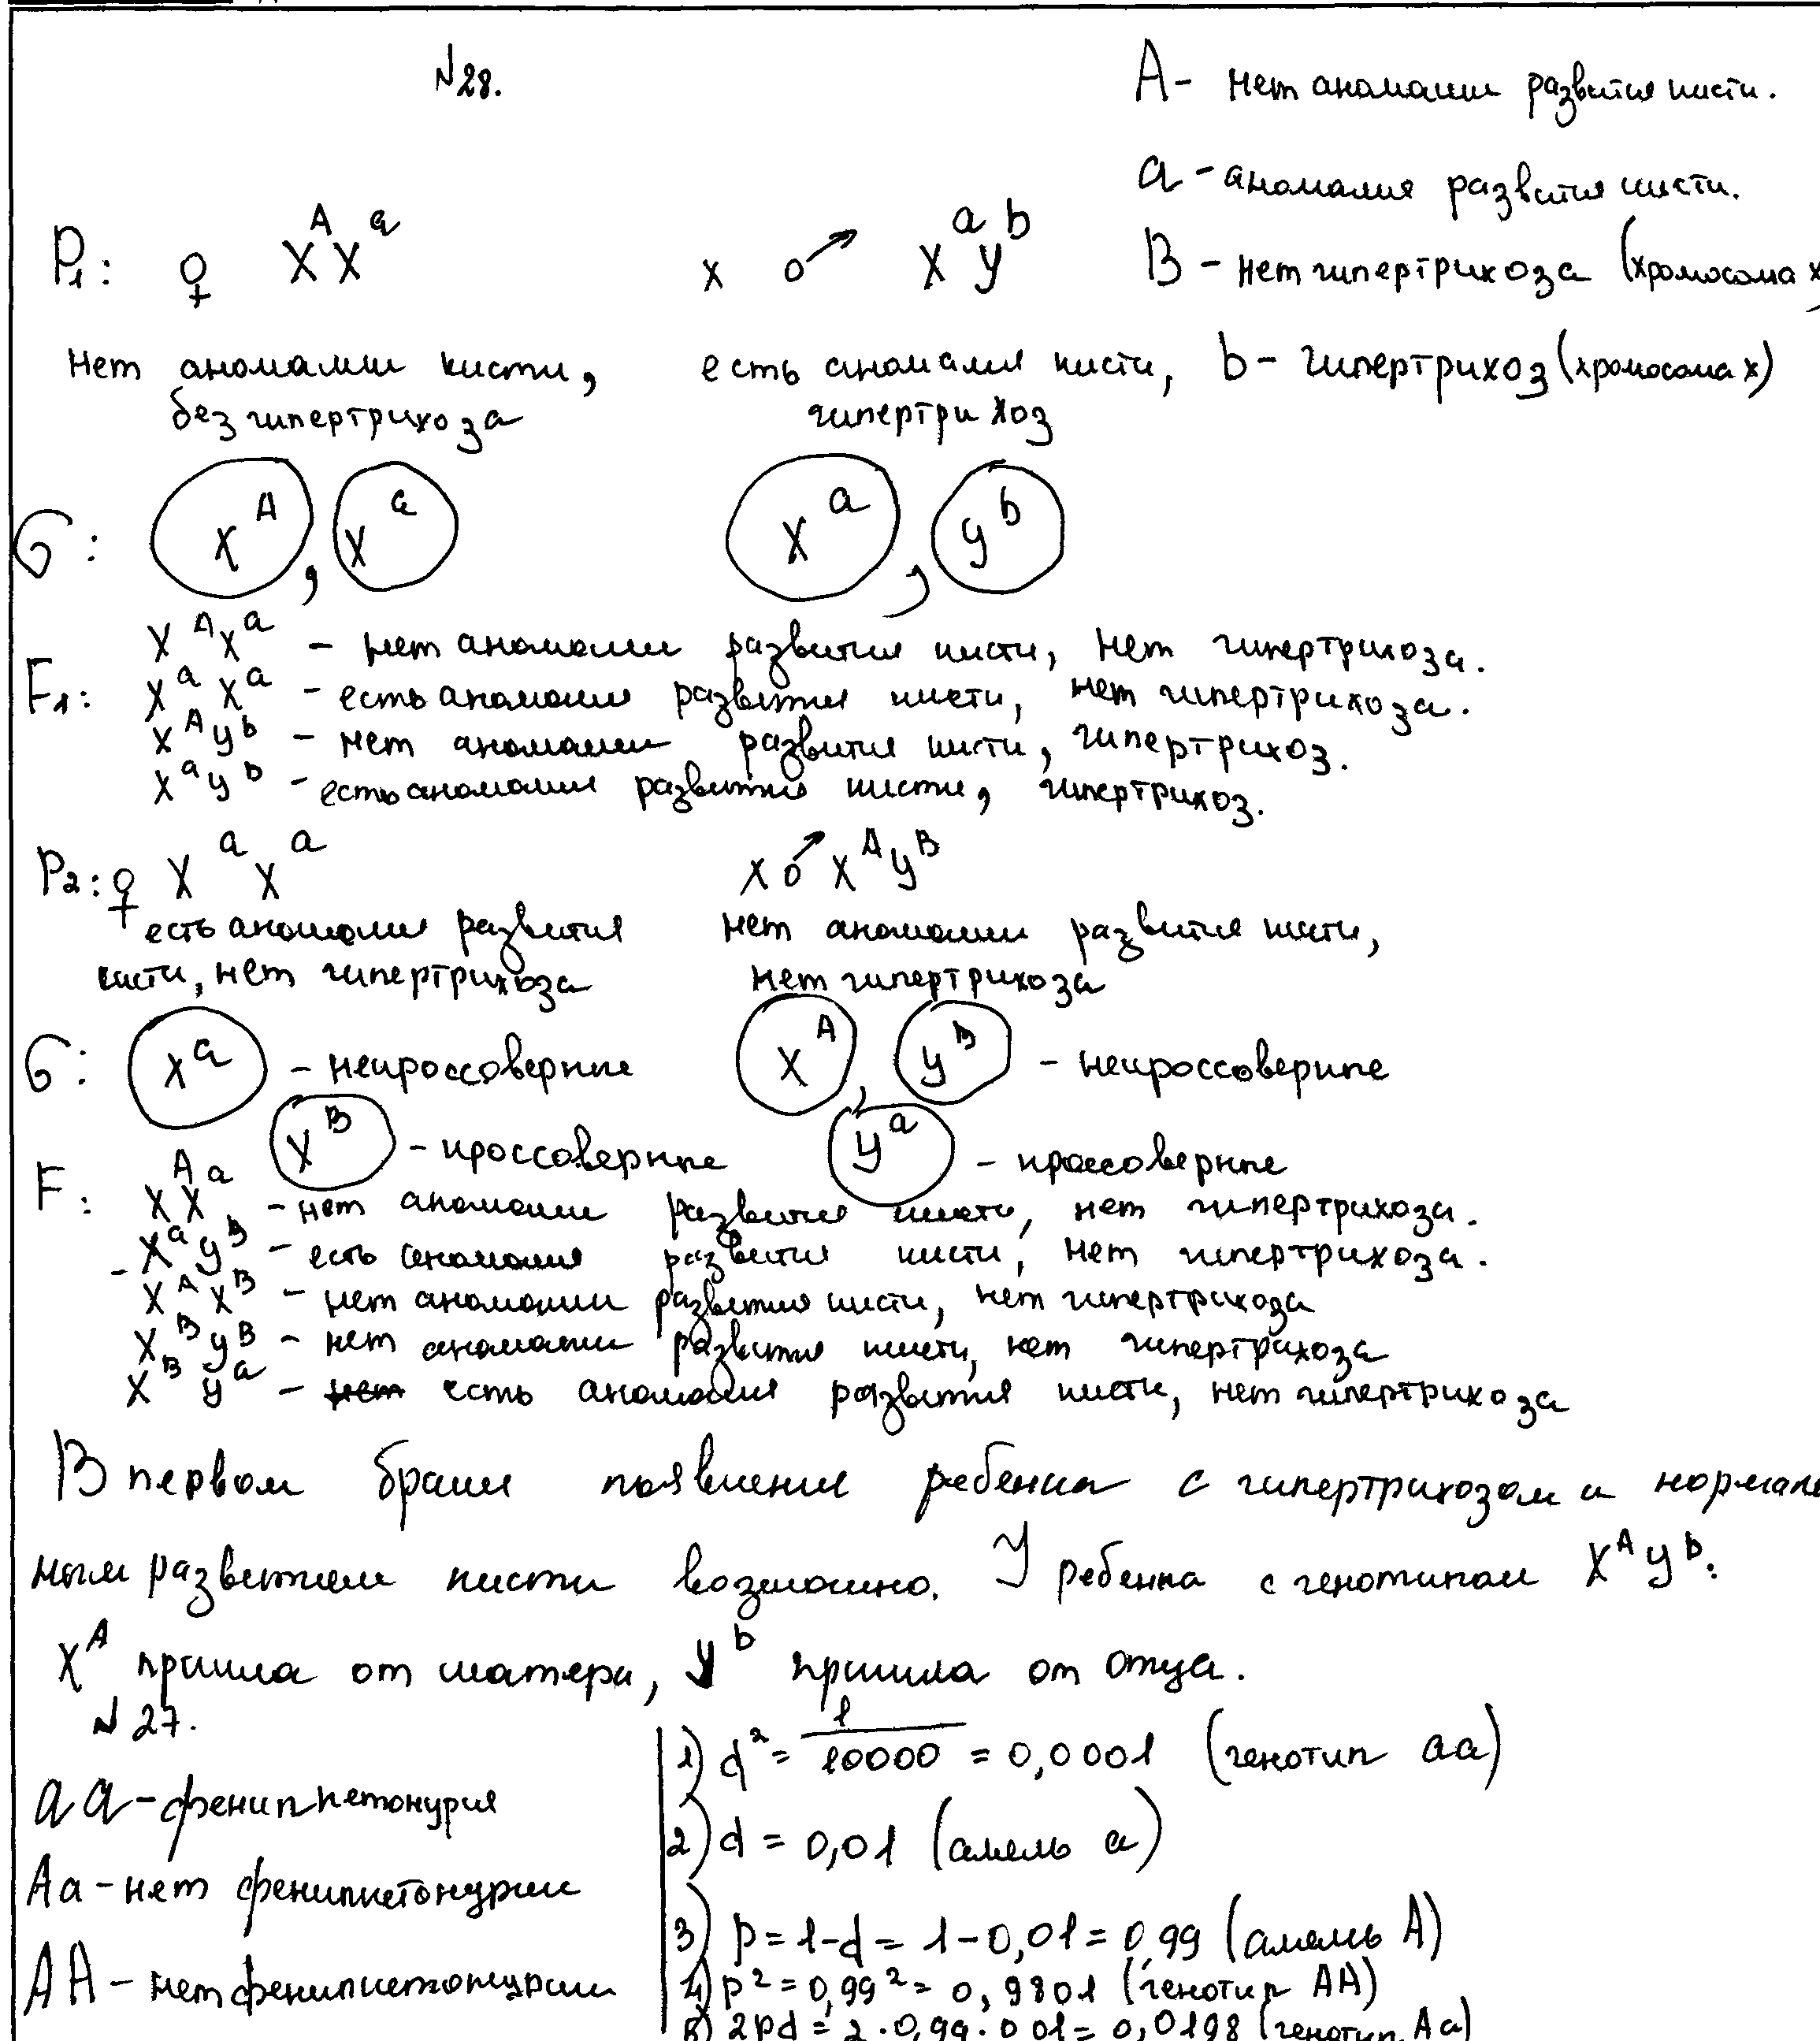 №28.
А - нет аномалии развития кисти.
а - аномалия развития кисти.
P₁: ♀ XᴬXᵃ x ♂ XᵃYᵇ
В - нет гипертрихоза (хромосома х
нет аномалии кисти, без гипертрихоза
есть аномалия кисти, гипертрихоз
b - гипертрихоз (хромосома х)
G: Xᴬ, Xᵃ Xᵃ, Yᵇ
F₁: XᴬXᵃ - нет аномалии развития кисти, нет гипертрихоза.
XᵃXᵃ - есть аномалия развития кисти, нет гипертрихоза.
XᴬYᵇ - нет аномалии развития кисти, гипертрихоз.
XᵃYᵇ - есть аномалия развития кисти, гипертрихоз.
P₂: ♀ XᵃXᵃ x ♂ XᴬYᴮ
есть аномалия развития кисти, нет гипертрихоза
нет аномалии развития кисти, нет гипертрихоза
G: Xᵃ - некроссоверные Xᴬ, Yᴮ - некроссоверные
Xᴮ - кроссоверные Yᵃ - кроссоверные
F: XᴬXᵃ - нет аномалии развития кисти, нет гипертрихоза.
- XᵃYᴮ - есть аномалия развития кисти, нет гипертрихоза.
XᴬXᴮ - нет аномалии развития кисти, нет гипертрихоза
XᴮYᴮ - нет аномалии развития кисти, нет гипертрихоза
XᴮYᵃ - нет есть аномалия развития кисти, нет гипертрихоза
В первом браке появление ребенка с гипертрихозом и нормаль
ным развитием кисти возможно. У ребенка с генотипом XᴬYᵇ:
Xᴬ пришла от матери, Yᵇ пришла от отца.
№ 27.
аа - фенилкетонурия
Аа - нет фенилкетонурии
АА - нет фенилкетонурии
1) d² = 1/10000 = 0,0001 (генотип аа)
2) d = 0,01 (аллель а)
3) p = 1-d = 1-0,01 = 0,99 (аллель А)
4) p² = 0,99² = 0,9801 (генотип АА)
5) 2pd = 2·0,99·0,01 = 0,0198 (генотип Аа)